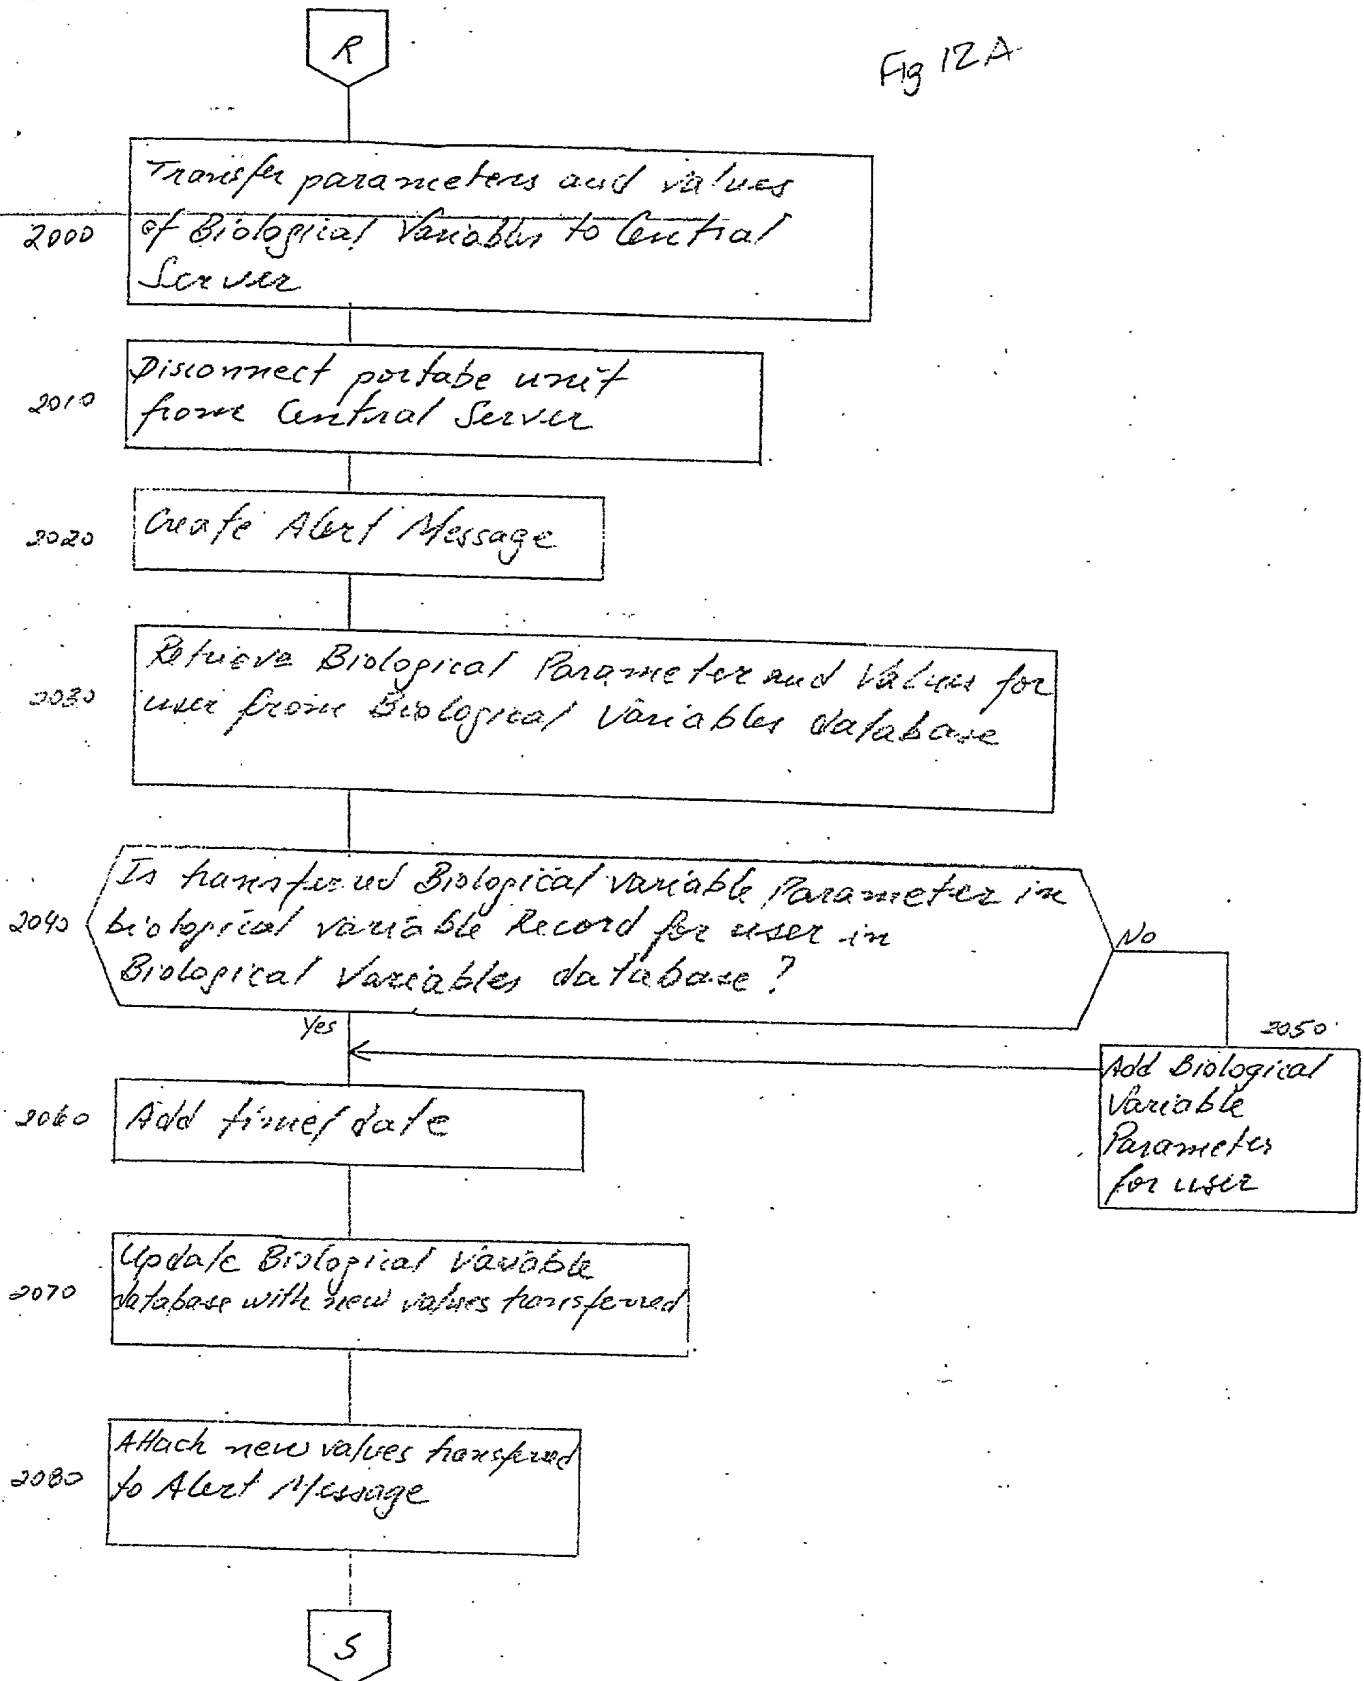 R
Fig 12A
Transfer parameters and values
2000 of Biological Variables to Central
Server
Disconnect portabe unit
2010 from Central Server
2020 Create Alert Message
Retrieve Biological Parameter and Values for
2030 user from Biological Variables database
Is transferred Biological variable Parameter in
2040 biological variable Record for user in
Biological Variables database?
No
Yes
2050
Add Biological
Variable
Parameter
for user
2060 Add time/date
Update Biological Variable
2070 database with new values transferred
Attach new values transferred
2080 to Alert Message
S